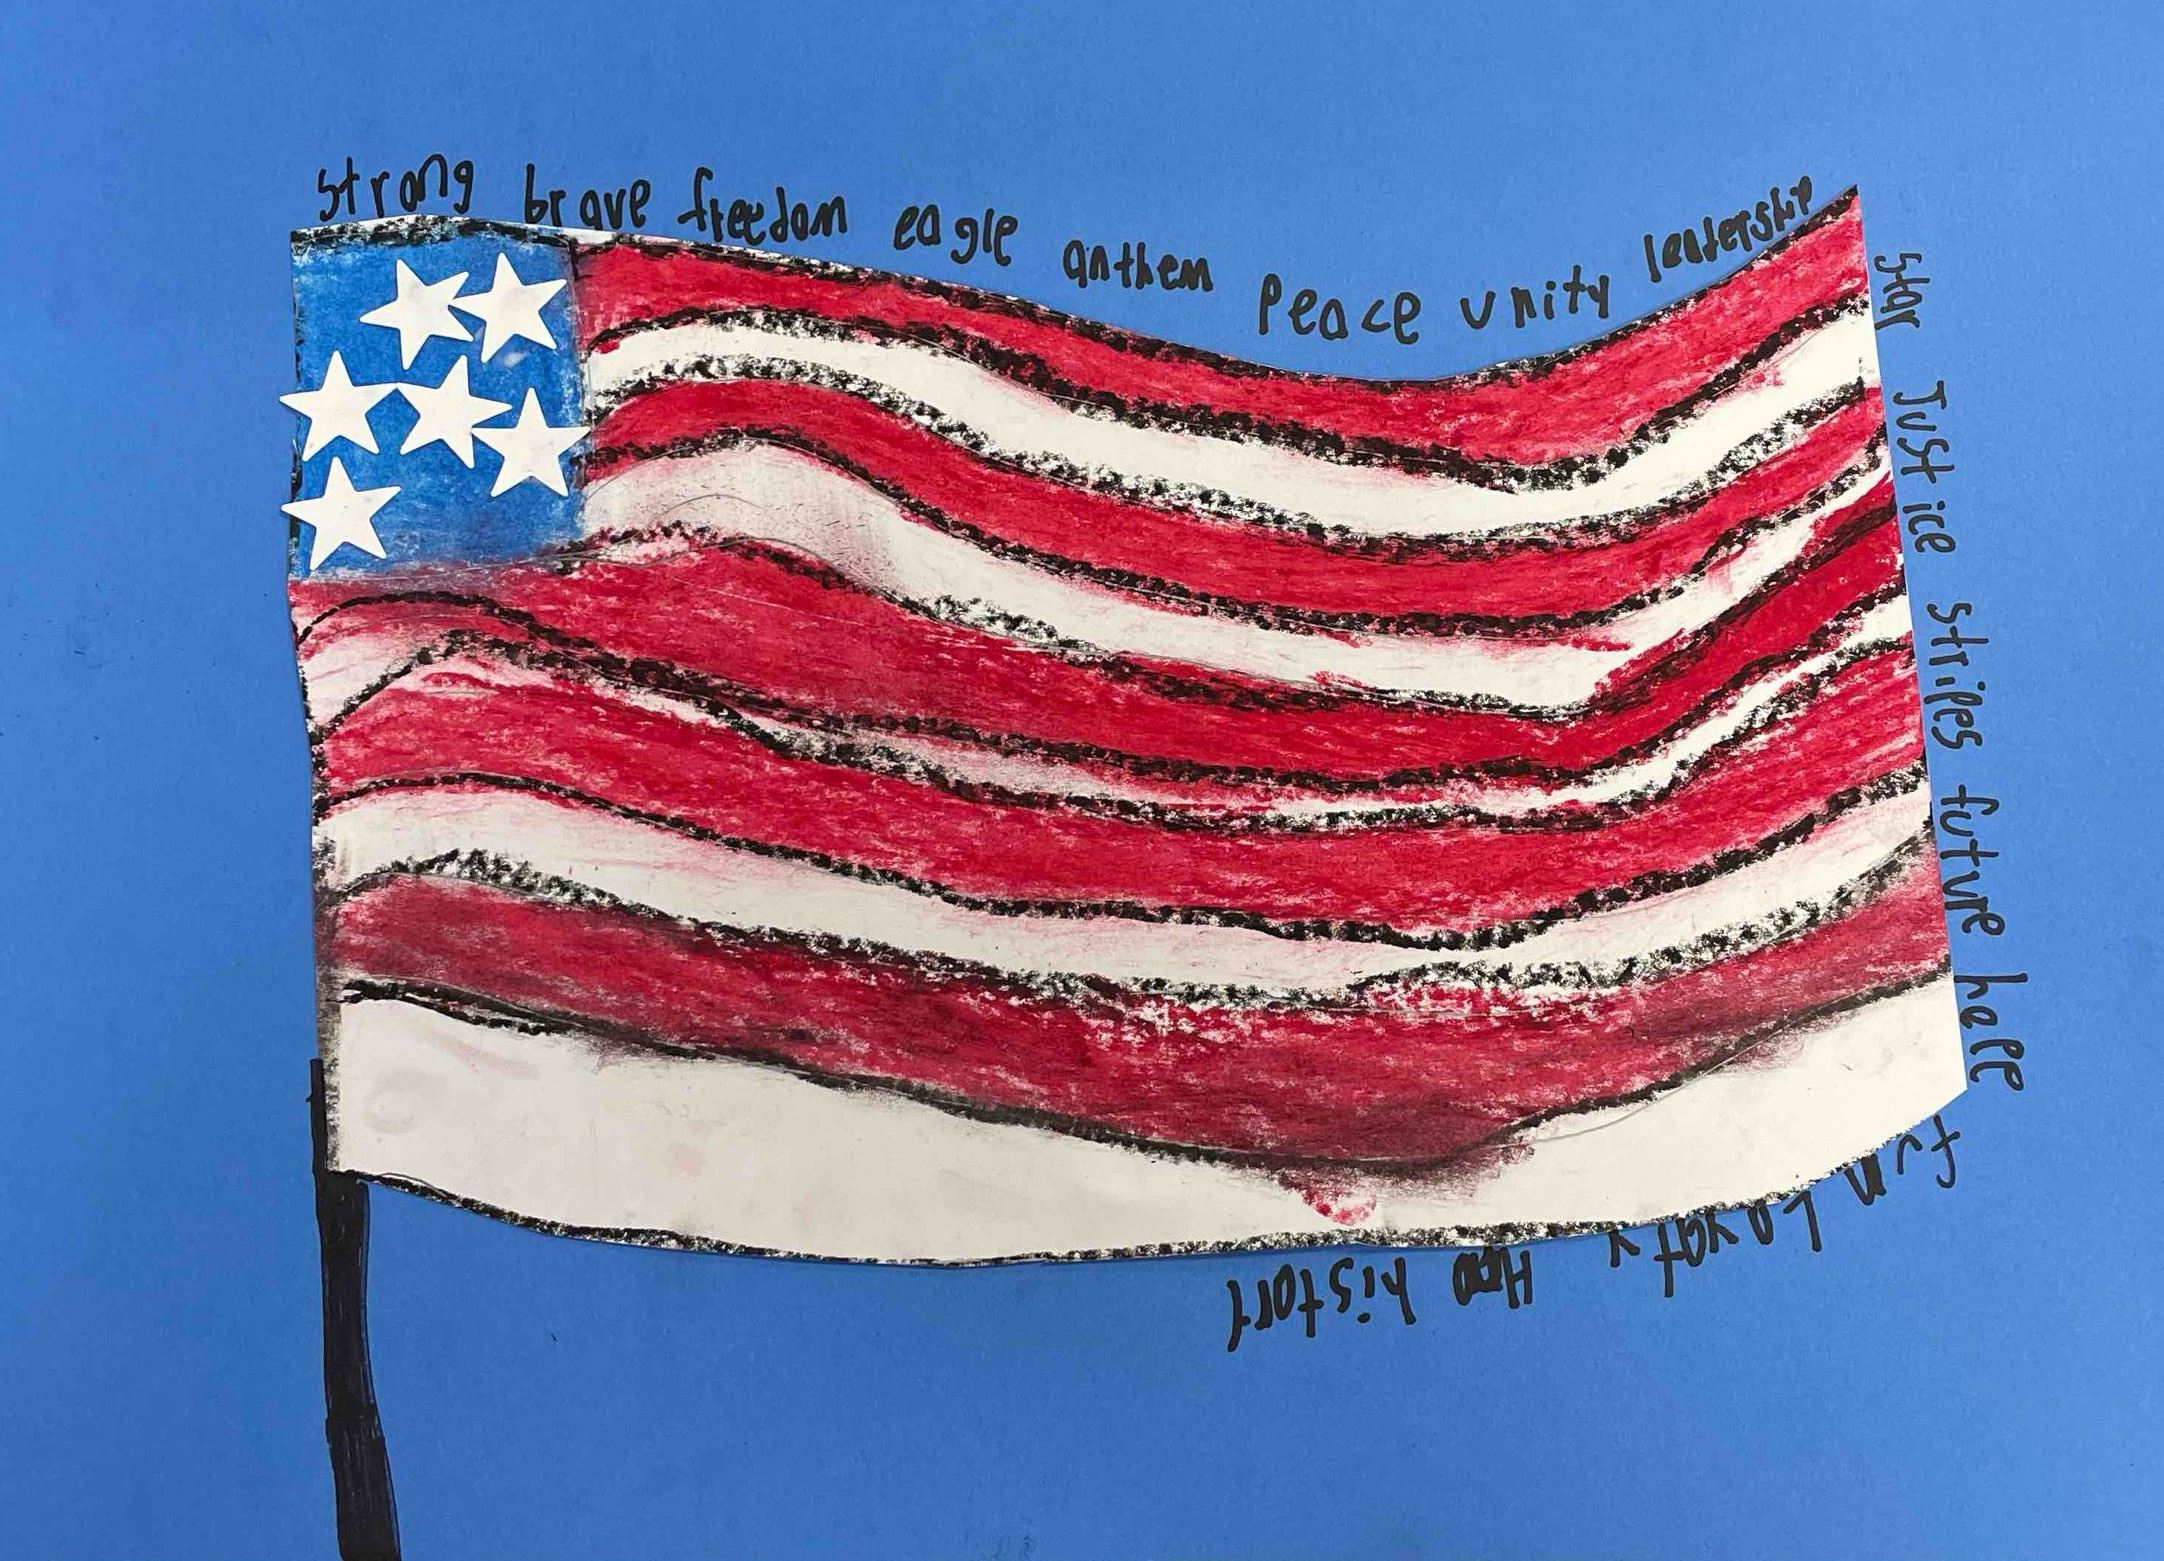 strong brave freedom eagle anthem Peace unity leadership
star Justice stripes future hope
fun Loyalty history